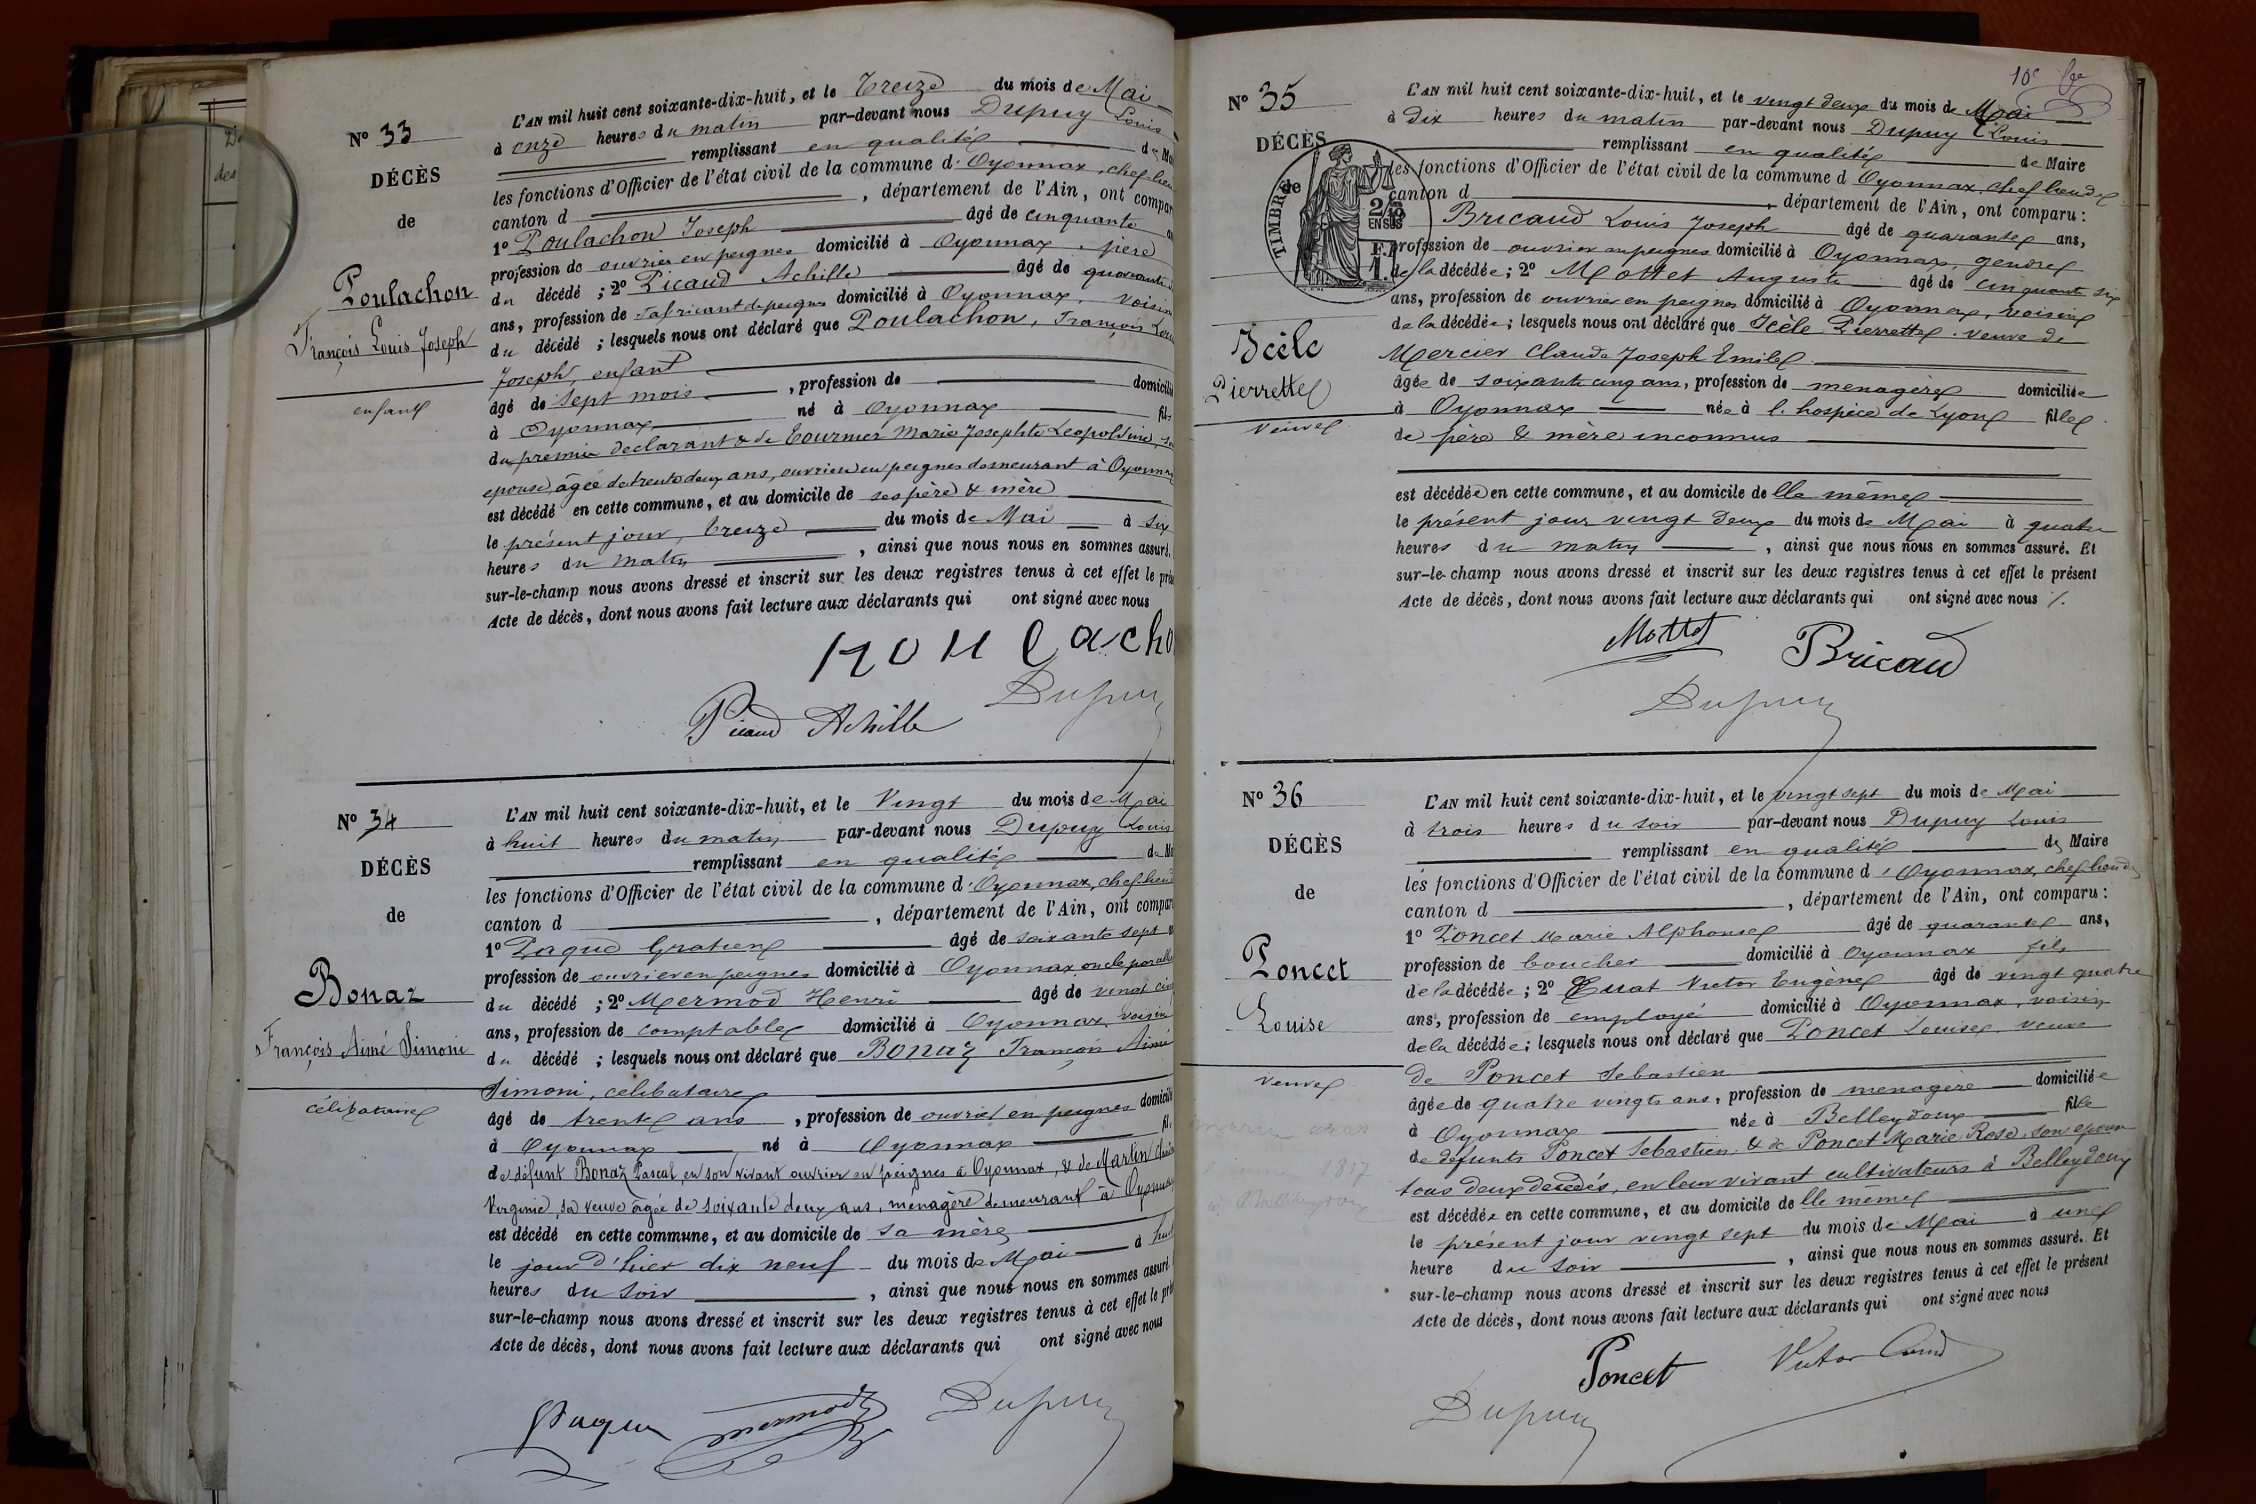 N° 33
DÉCÈS
de
Poulachon
François Louis Joseph
enfant
L'AN mil huit cent soixante-dix-huit, et le treize du mois de Mai
à onze heures du matin par-devant nous Dupuy Louis
remplissant en qualité de
les fonctions d'Officier de l'état civil de la commune d'Oyonnax, chef lieu
canton d , département de l'Ain, ont compar
1° Poulachon Joseph âgé de cinquante
profession de ouvrier en peignes domicilié à Oyonnax, père
du décédé ; 2° Picaud Achille âgé de quarante
ans, profession de fabricant de peignes domicilié à Oyonnax, voisin
du décédé ; lesquels nous ont déclaré que Poulachon, François Louis
Joseph, enfant
âgé de sept mois , profession de domicilié
à Oyonnax né à Oyonnax fils
du premier déclarant & de Tournier Marie Josephte Leopoldine, son
epouse, âgée de trente deux ans, ouvrière en peignes demeurant à Oyonnax
est décédé en cette commune, et au domicile de ses père & mère
le présent jour, treize du mois de Mai à six
heures du matin , ainsi que nous nous en sommes assuré.
sur-le-champ nous avons dressé et inscrit sur les deux registres tenus à cet effet le prése
Acte de décès, dont nous avons fait lecture aux déclarants qui ont signé avec nous
poulacho
Picaud Achille Dupuy
N° 34
DÉCÈS
de
Bonaz
François Aimé Simoni
célibataire
L'AN mil huit cent soixante-dix-huit, et le Vingt du mois de Mai
à huit heures du matin par-devant nous Dupuy Louis
remplissant en qualité de
les fonctions d'Officier de l'état civil de la commune d'Oyonnax, chef lieu d
canton d , département de l'Ain, ont compar
1° Paque Gratien âgé de soixante sept
profession de ouvrier en peignes domicilié à Oyonnax, oncle par
du décédé ; 2° Mermod Henri âgé de vingt cinq
ans, profession de comptable domicilié à Oyonnax, voisin
du décédé ; lesquels nous ont déclaré que Bonaz François Aimé
Simoni, celibataire
âgé de trente ans , profession de ouvrier en peignes domicilié
à Oyonnax né à Oyonnax fil
de défunt Bonaz Pascal, en son vivant ouvrier en peignes à Oyonnax, & de Martin
Virginie, sa veuve âgée de soixante deux ans, ménagère demeurant à Oyonnax
est décédé en cette commune, et au domicile de sa mère
le jour d'hier dix neuf du mois de Mai à huit
heures du soir , ainsi que nous nous en sommes assuré.
sur-le-champ nous avons dressé et inscrit sur les deux registres tenus à cet effet le pré
Acte de décès, dont nous avons fait lecture aux déclarants qui ont signé avec nous
Paque mermod Dupuy
N° 35
DÉCÈS
de
TIMBRE
Icèle
Pierrette
veuve
L'AN mil huit cent soixante-dix-huit, et le vingt deux du mois de Mai
à dix heures du matin par-devant nous Dupuy Louis
remplissant en qualité de Maire
les fonctions d'Officier de l'état civil de la commune d Oyonnax, chef lieu de
canton d , département de l'Ain, ont comparu :
Bricaud Louis Joseph âgé de quarante ans,
profession de ouvrier en peignes domicilié à Oyonnax, gendre
de la décédée ; 2° Mottet Auguste âgé de cinquante six
ans, profession de ouvrier en peignes domicilié à Oyonnax, voisin
de la décédée ; lesquels nous ont déclaré que Icèle Pierrette, veuve de
Mercier Claude Joseph Emile
âgée de soixante cinq ans, profession de menagère domiciliée
à Oyonnax née à l'hospice de Lyon fille
de père & mère inconnus
est décédée en cette commune, et au domicile de lle même
le présent jour vingt deux du mois de Mai à quatre
heures du matin , ainsi que nous nous en sommes assuré. Et
sur-le-champ nous avons dressé et inscrit sur les deux registres tenus à cet effet le présent
Acte de décès, dont nous avons fait lecture aux déclarants qui ont signé avec nous
Mottet Bricaud
Dupuy
N° 36
DÉCÈS
de
Poncet
Louise
veuve
L'AN mil huit cent soixante-dix-huit, et le vingt sept du mois de Mai
à trois heures du soir par-devant nous Dupuy Louis
remplissant en qualité de Maire
les fonctions d'Officier de l'état civil de la commune d'Oyonnax, chef lieu de
canton d , département de l'Ain, ont comparu :
1° Poncet Marie Alphonse âgé de quarante ans,
profession de boucher domicilié à Oyonnax fils
de la décédée ; 2° Cuat Victor Eugène âgé de vingt quatre
ans, profession de employé domicilié à Oyonnax, voisin
de la décédée ; lesquels nous ont déclaré que Poncet Louise, veuve
de Poncet Sebastien
âgée de quatre vingts ans, profession de menagère domiciliée
à Oyonnax née à Belleydoux fille
de défunts Poncet Sebastien, & de Poncet Marie Rose, son epouse
tous deux decedés, en leur vivant cultivateurs à Belleydoux
est décédée en cette commune, et au domicile de lle même
le présent jour vingt sept du mois de Mai à une
heure du soir , ainsi que nous nous en sommes assuré. Et
sur-le-champ nous avons dressé et inscrit sur les deux registres tenus à cet effet le présent
Acte de décès, dont nous avons fait lecture aux déclarants qui ont signé avec nous
Poncet Victor
Dupuy